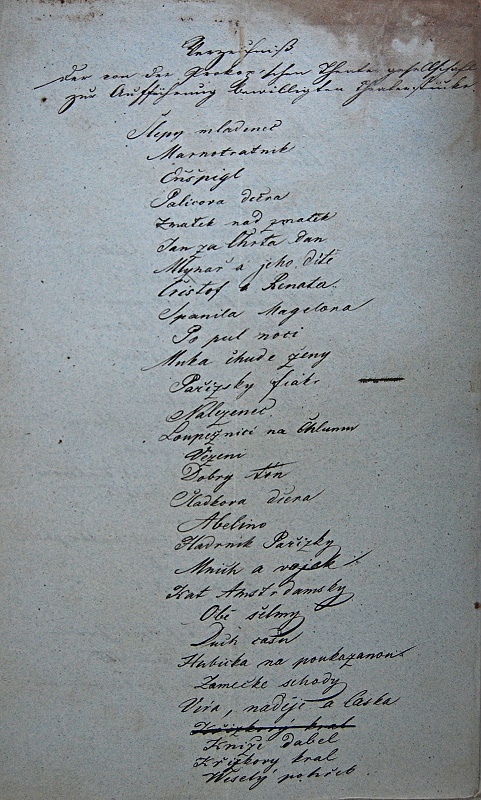 Verzeichniß
der von der Prokop'schen Theatergesellschaft
zur Aufführung bewilligten Theaterstücke.
Slepy mladenec
Marnotratnik
Enšpigl
Palicova dcera
Zmatek nad zmatek
Jan za Chrta dan
Mlynař a jeho dítě
Cristof a Renata.
Spanila Magelona
Po pul noci
Muka chude ženy
Pařižsky fiakr
Nalezenec
Loupežnici na Chlumu
Vězeni
Dobry ton
Sladkova dcera
Abelino
Hadrnik Pařižky
Mnich a vojak
Kat Amstrdamsky
Obě šelmy
Duch času
Hubička na poukazanou
Zamečke schody
Víra, naděje a laska
Křižkový kral
Kniže dabel
Křižkovy kral
Weselý pohřeb